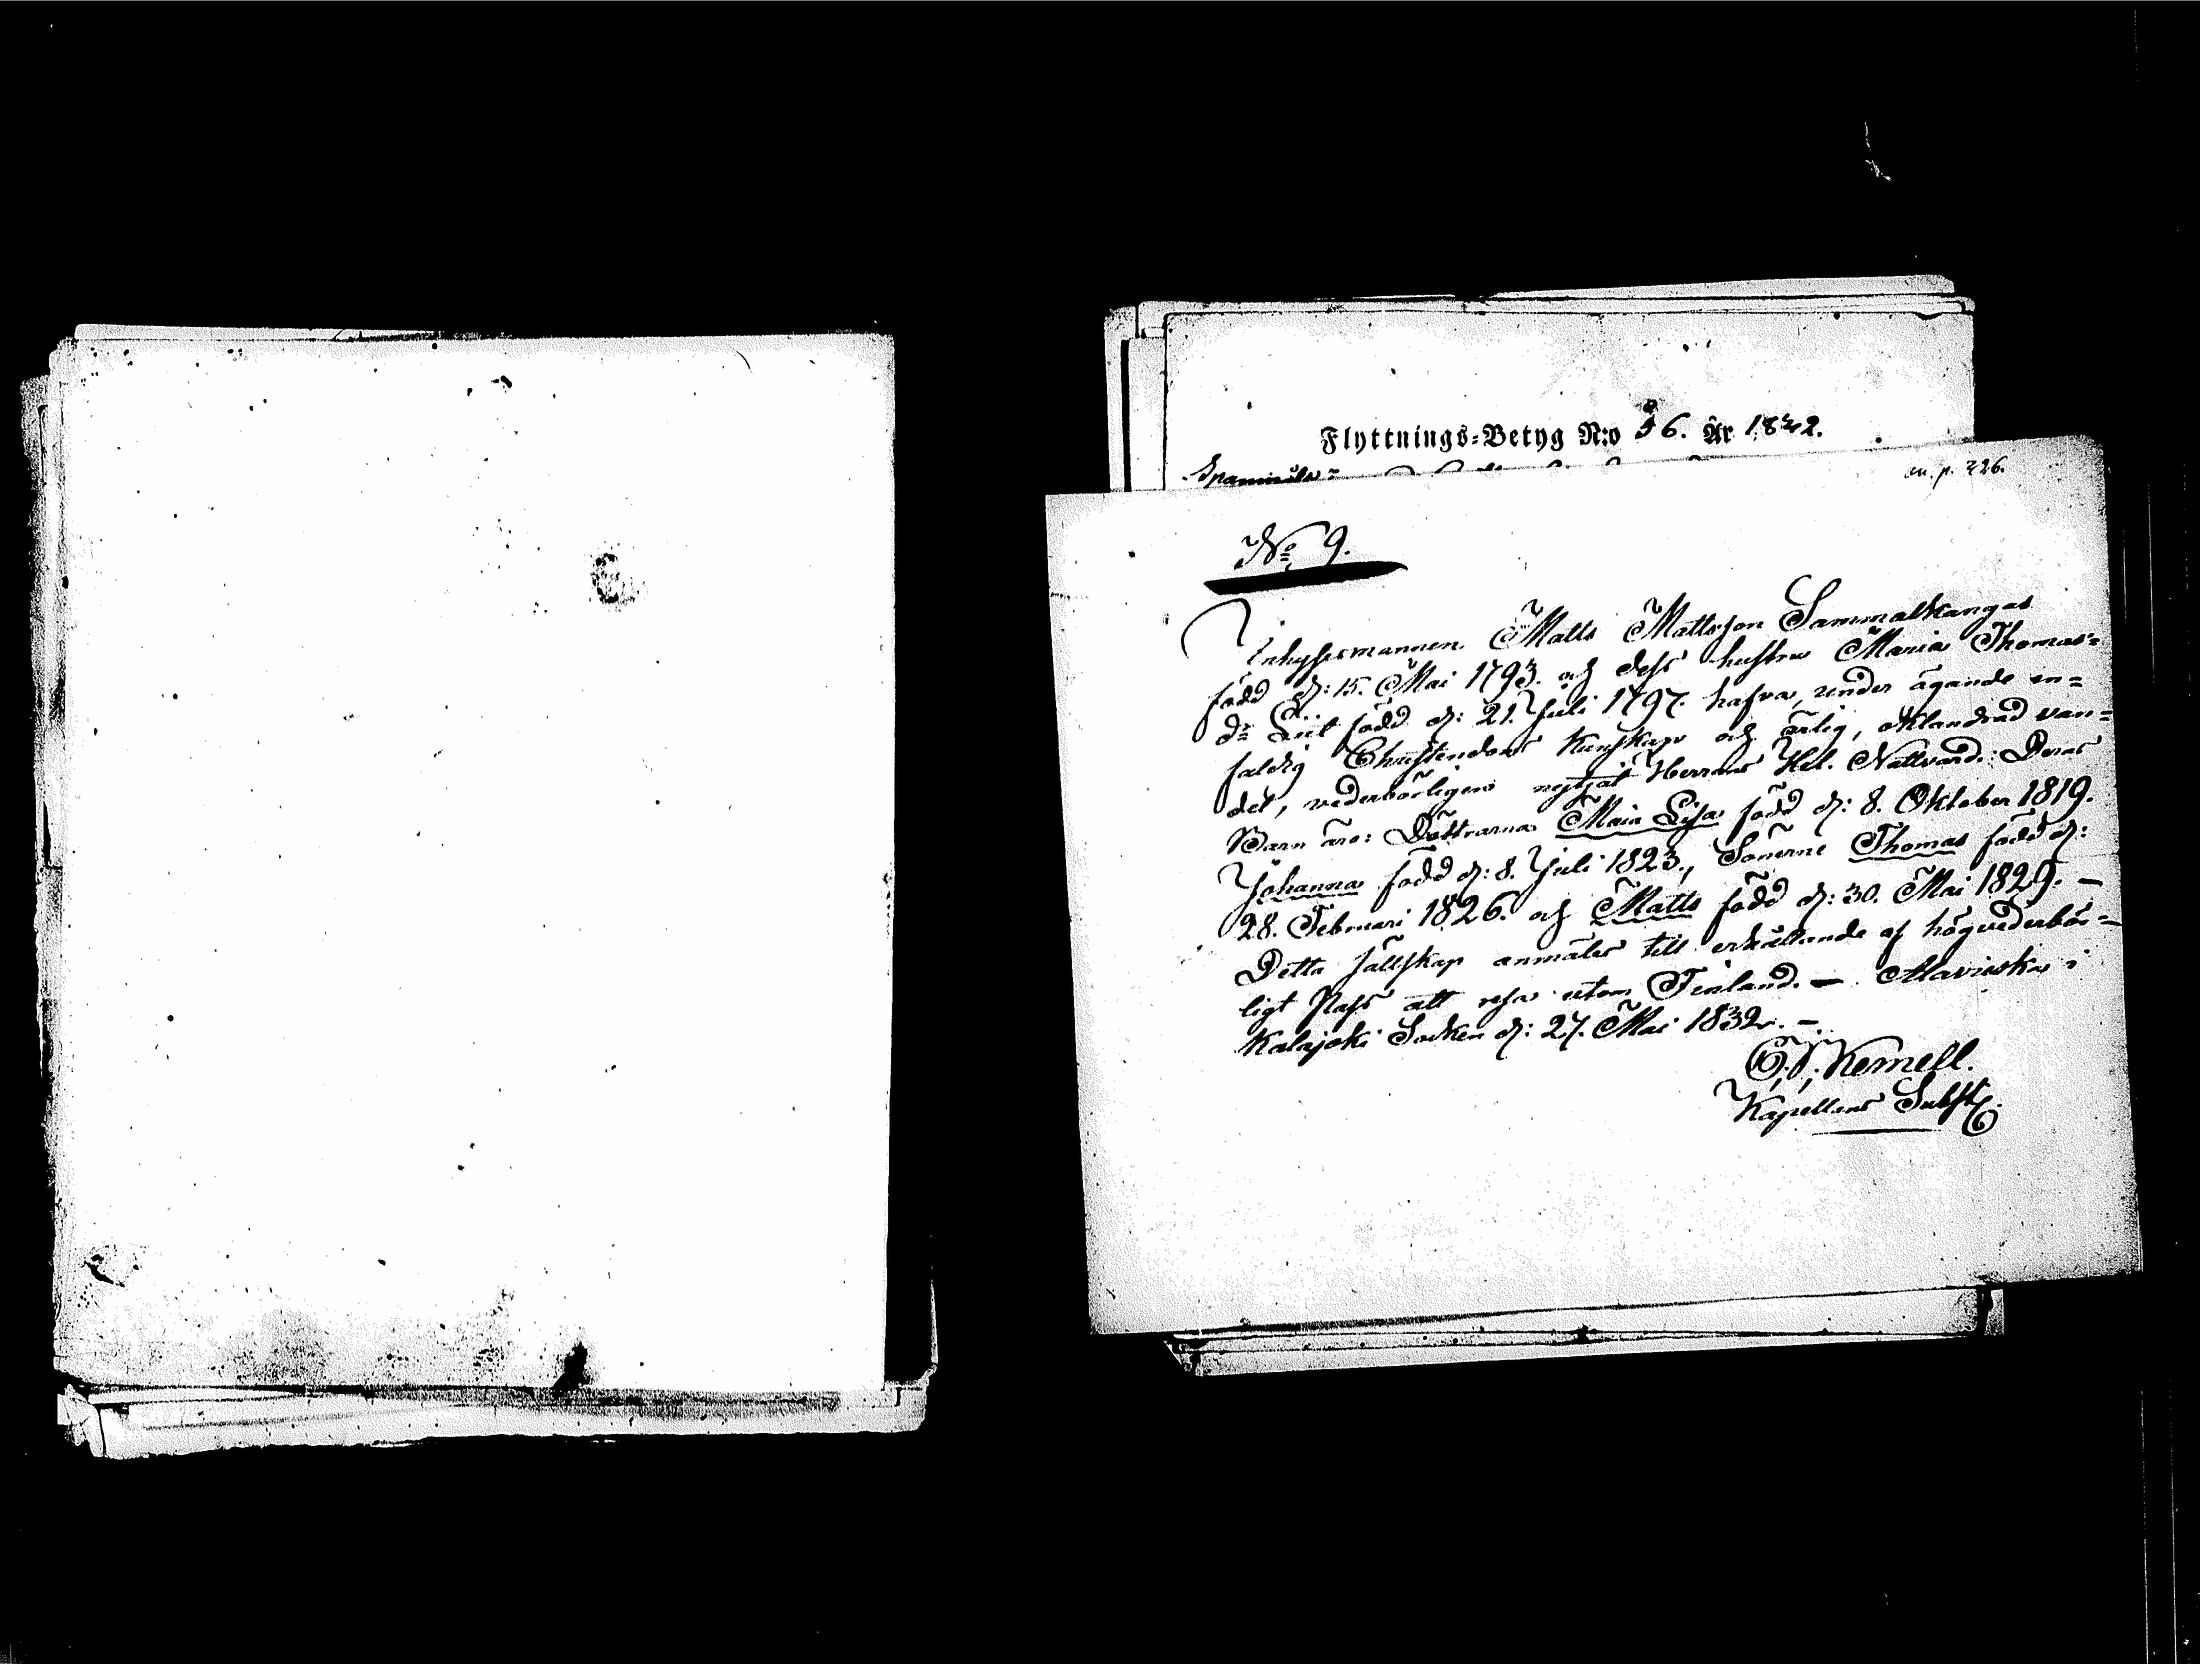 Flyttnings-Betyg N:o 56. År 1842.
an. p. 226.
No 9.
Inhysesmannen Matts Mattsson Sammalkangas
född d: 15. Mai 1793. och dess hustru Maria Thomas=
dr född d: 21. Juli 1797. hafva, under ägande en=
faldig Christendoms Kunskap och ärlig, oklandrad van=
del, vederbörligen nyttjat Herrans Hel. Nattvard. Deras
Barn äro: Döttrarna Maia Lisa född d: 8. Oktober 1819.
Johanna född d: 8. Juli 1823., Sönerne Thomas född d:
28. Februari 1826. och Matts född d: 30. Mai 1829. —
Detta sällskap anmäles till erhållande af högvederbör=
ligt Pass att resa utom Finland. — Alavieska i
Kalajoki Socken d: 27. Mai 1832. —
Kemell.
Kapellans Subst.